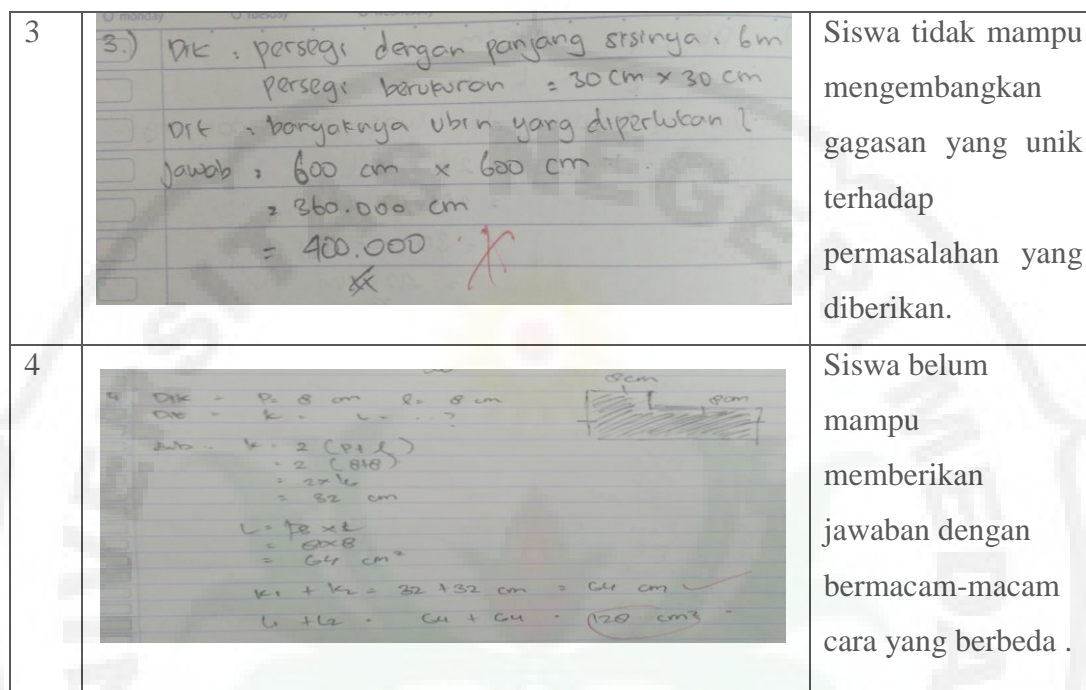 3
3.) Dik : persegi dengan panjang sisinya : 6m
persegi berukuran = 30 cm x 30 cm
Dit : banyaknya ubin yang diperlukan ?
Jawab : 600 cm x 600 cm
= 360.000 cm
= 400.000
Siswa tidak mampu
mengembangkan
gagasan yang unik
terhadap
permasalahan yang
diberikan.
4
Dik = P = 8 cm l = 8 cm
Dit = k = L = ...?
8 cm
8 cm
Jwb = k = 2 (P+l)
= 2 (8+8)
= 2x16
= 32 cm
= 8x8
= 64 cm²
k1 + k2 = 32 + 32 cm = 64 cm
L1 + L2 = 64 + 64 = 128 cm²
Siswa belum
mampu
memberikan
jawaban dengan
bermacam-macam
cara yang berbeda .